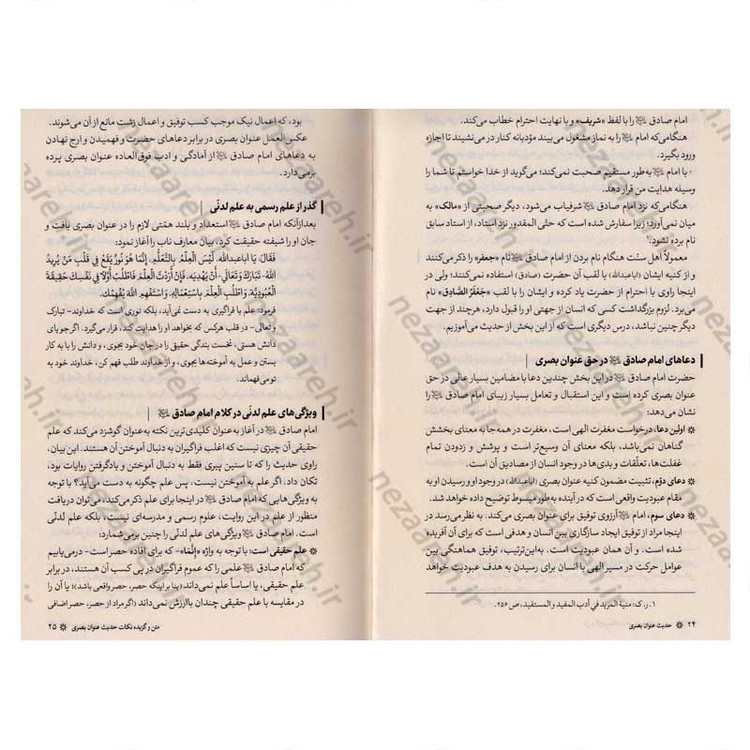 امام صادق را با لفظ «شریف» و با نهایت احترام خطاب می‌کند.
هنگامی‌که امام را به نماز مشغول می‌بیند مؤدبانه کنار در می‌نشیند تا اجازه
ورود بگیرد.
با امام به‌طور مستقیم صحبت نمی‌کند؛ می‌گوید از خدا خواستم تا شما را
وسیله هدایت من قرار دهد.
هنگامی‌که نزد امام صادق شرفیاب می‌شود، دیگر صحبتی از «مالک» به
میان نمی‌آورد؛ زیرا سفارش شده است که حتّی المقدور نزد استاد، از استاد سابق
نام برده نشود.
معمولاً اهل سنّت هنگام نام بردن از امام صادق نام «جعفر» را ذکر می‌کنند
و از کنیه ایشان (اباعبدالله) یا لقب آن حضرت (صادق) استفاده نمی‌کنند؛ ولی در
اینجا راوی با احترام از حضرت یاد کرده و ایشان را با لقب «جَعْفَرٌ الصَّادِقُ» نام
می‌برد. لزوم بزرگداشت کسی که انسان از جهتی او را قبول دارد، هرچند از جهت
دیگر چنین نباشد، درس دیگری است که از این بخش از حدیث می‌آموزیم.
دعاهای امام صادق در حق عنوان بصری
حضرت امام صادق در این بخش چندین دعا با مضامین بسیار عالی در حق
عنوان بصری کرده است و این استقبال و تعامل بسیار زیبای امام صادق را
نشان می‌دهد:
اولین دعا، درخواست مغفرت الهی است. مغفرت در همه‌جا به معنای بخشش
گناهان نمی‌باشد، بلکه معنای آن وسیع‌تر است و پوشش و زدودن تمام
غفلت‌ها، تعلّقات و بدی‌ها در وجود انسان از مصادیق آن است.
دعای دوّم، تثبیت مضمون کنیه عنوان بصری (اباعبدالله) در وجود او و رسیدن او به
مقام عبودیت واقعی است که در آینده به‌طور مبسوط توضیح داده خواهد شد.
دعای سوم، امام آرزوی توفیق برای عنوان بصری می‌کند. به نظر می‌رسد در
اینجا مراد از توفیق ایجاد سازگاری بین انسان و هدفی است که برای آن آفریده
شده است. و آن همان عبودیت است. به‌این‌ترتیب، توفیق هماهنگی بین
عوامل حرکت در مسیر الهی با انسان برای رسیدن به هدف عبودیت خواهد
۱. ر.ک: منیة المرید فی أدب المفید و المستفید، ص ۲۵۶.
۲۴ حدیث عنوان بصری
بود، که اعمال نیک موجب کسب توفیق و اعمال زشت مانع از آن می‌شوند.
عکس‌العمل عنوان بصری در برابر دعاهای حضرت و فهمیدن و ارج نهادن
به دعاهای امام صادق از آمادگی و ادب فوق‌العاده عنوان بصری پرده
برمی‌دارد.
گذر از علم رسمی به علم لدنّی
بعدازآنکه امام صادق استعداد و بلند همّتی لازم را در عنوان بصری یافت و
جان او را شیفته حقیقت کرد، بیان معارف ناب را آغاز نمود:
فَقَالَ: یَا اباعبدالله، لَیْسَ الْعِلْمُ بِالتَّعَلُّمِ، إِنَّمَا هُوَ نُورٌ یَقَعُ فِی قَلْبِ مَنْ یُرِیدُ
اللهُ - تَبَارَکَ وَتَعَالَی - أَنْ یَهْدِیَهُ، فَإِنْ أَرَدْتَ الْعِلْمَ، فَاطْلُبْ أَوَّلًا فِی نَفْسِکَ حَقِیقَةَ
الْعُبُودِیَّةِ، وَاطْلُبِ الْعِلْمَ بِاسْتِعْمَالِهِ، وَاسْتَفْهِمِ اللهَ یُفَهِّمْکَ.
فرمود: علم با فراگیری به دست نمی‌آید، بلکه نوری است که خداوند - تبارک
و تعالی - در قلب هرکس که بخواهد او را هدایت کند، قرار می‌گیرد. اگر جویای
دانش هستی، نخست بندگی حقیقی را در جان خود بجوی، و دانش را با به کار
بستن و عمل به آموخته‌ها بجوی، و از خداوند طلب فهم کن، خداوند خود به
تو می‌فهماند.
ویژگی‌های علم لدنّی در کلام امام صادق
امام صادق در آغاز به‌عنوان کلیدی‌ترین نکته به عنوان گوشزد می‌کند که علم
حقیقی آن چیزی نیست که اغلب فراگیران به دنبال آموختن آن هستند. این بیان،
راوی حدیث را که تا سنین پیری فقط به دنبال آموختن و یادگرفتن روایات بود،
تکان داد. اگر علم به آموختن نیست، پس علم چگونه به دست می‌آید؟ با توجه
به ویژگی‌هایی که امام صادق در اینجا برای علم ذکر می‌کند، می‌توان دریافت
منظور از علم در این روایت، علوم رسمی و مدرسه‌ای نیست، بلکه علم لدنّی
است. امام صادق ویژگی‌های علم لدنّی را چنین برمی‌شمارد:
علم حقیقی است؛ با توجه به واژه «إنّما» - که برای افاده حصر است - درمی‌یابیم
که امام صادق علمی را که عموم فراگیران در پی کسب آن هستند، در برابر
علم حقیقی، یا اساساً علم نمی‌داند (بنا بر اینکه حصر، حصر واقعی باشد)؛ یا آن را
در مقایسه با علم حقیقی چندان باارزش نمی‌داند (اگر مراد از حصر، حصر اضافی
متن و گزیده نکات حدیث عنوان بصری ۲۵
nezaareh.ir